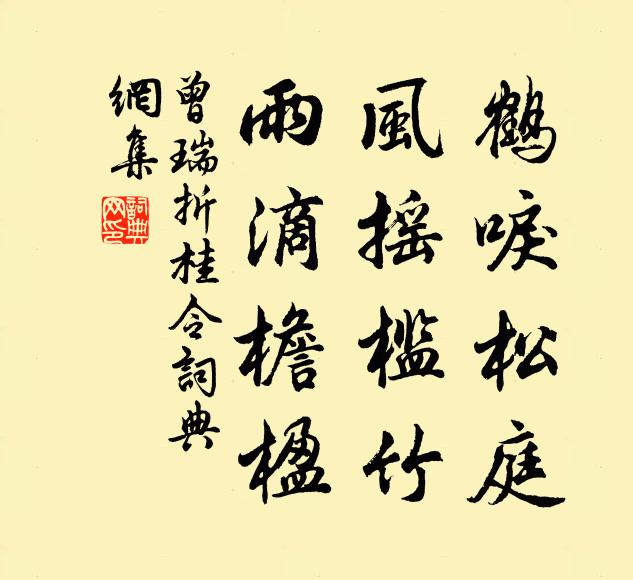 鶴唳松庭
風摇檻竹
雨滴檐楹
曾瑞折桂令詞典
網集
詞典
网印